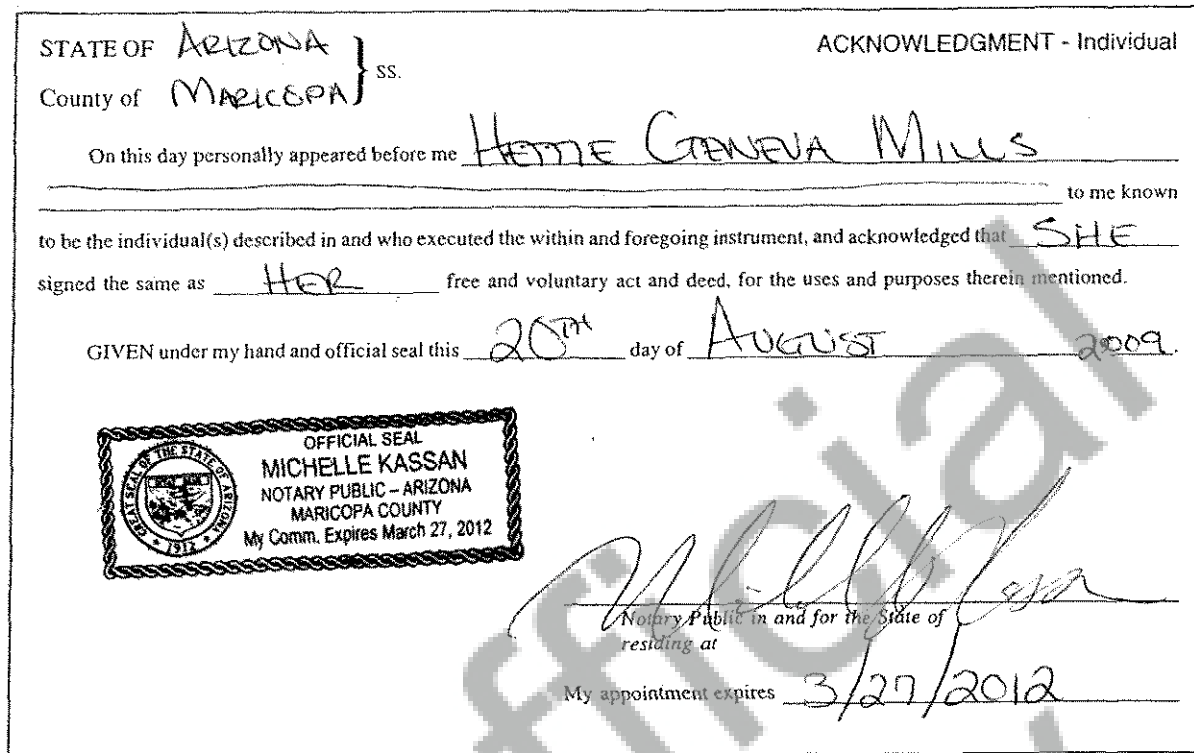 STATE OF ARIZONA } ss. ACKNOWLEDGMENT - Individual
County of MARICOPA
On this day personally appeared before me HETTIE GENEVA MILLS
to me known
to be the individual(s) described in and who executed the within and foregoing instrument, and acknowledged that SHE
signed the same as HER free and voluntary act and deed, for the uses and purposes therein mentioned.
GIVEN under my hand and official seal this 20TH day of AUGUST 2009.
OFFICIAL SEAL
MICHELLE KASSAN
NOTARY PUBLIC – ARIZONA
MARICOPA COUNTY
My Comm. Expires March 27, 2012
GREAT SEAL OF THE STATE OF ARIZONA
1912
Michelle Kassan
Notary Public in and for the State of
residing at
My appointment expires 3/27/2012
fficial